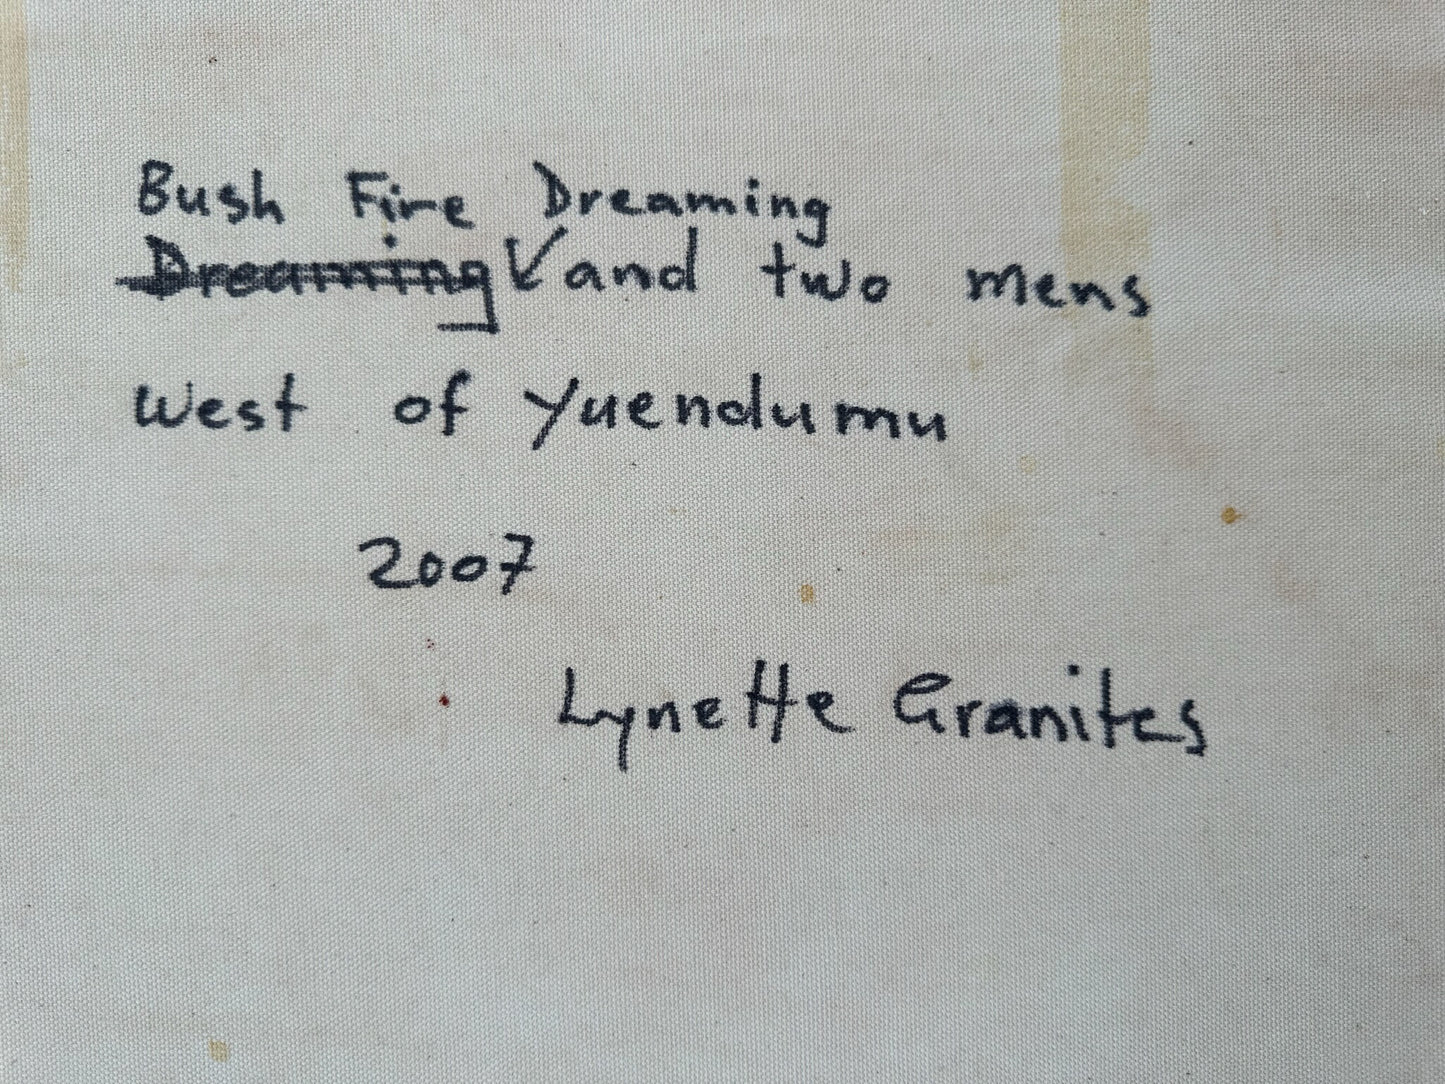 Bush Fire Dreaming
Dreaming and two mens
West of Yuendumu
2007
Lynette Granites